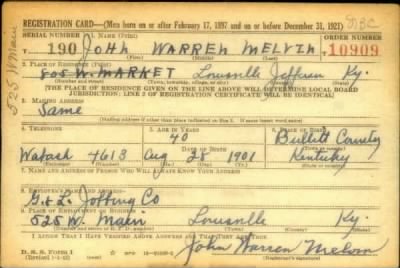 REGISTRATION CARD—(Men born on or after February 17, 1897 and on or before December 31, 1921)
SERIAL NUMBER 1. NAME (Print) ORDER NUMBER
190 JOHN WARREN MELVIN 10909
(First) (Middle) (Last)
2. PLACE OF RESIDENCE (Print)
805 W. MARKET Louisville Jefferson Ky.
(Number and street) (Town, township, village, or city) (County) (State)
[THE PLACE OF RESIDENCE GIVEN ON THE LINE ABOVE WILL DETERMINE LOCAL BOARD
JURISDICTION; LINE 2 OF REGISTRATION CERTIFICATE WILL BE IDENTICAL]
525 W Main
3. MAILING ADDRESS
Same
[Mailing address if other than place indicated on line 2. If same insert word same]
4. TELEPHONE 5. AGE IN YEARS 6. PLACE OF BIRTH
40 Bullitt County
Wabash 4613 Aug 28 1901 Kentucky
7. NAME AND ADDRESS OF PERSON WHO WILL ALWAYS KNOW YOUR ADDRESS
8. EMPLOYER'S NAME AND ADDRESS
Jobbing Co
9. PLACE OF EMPLOYMENT OR BUSINESS
525 W. Main Louisville Ky.
(Number and street or R. F. D. number) (Town) (County) (State)
I AFFIRM THAT I HAVE VERIFIED ABOVE ANSWERS AND THAT THEY ARE TRUE.
D. S. S. FORM 1
(Revised 1-1-42) (over)
John Warren Melvin